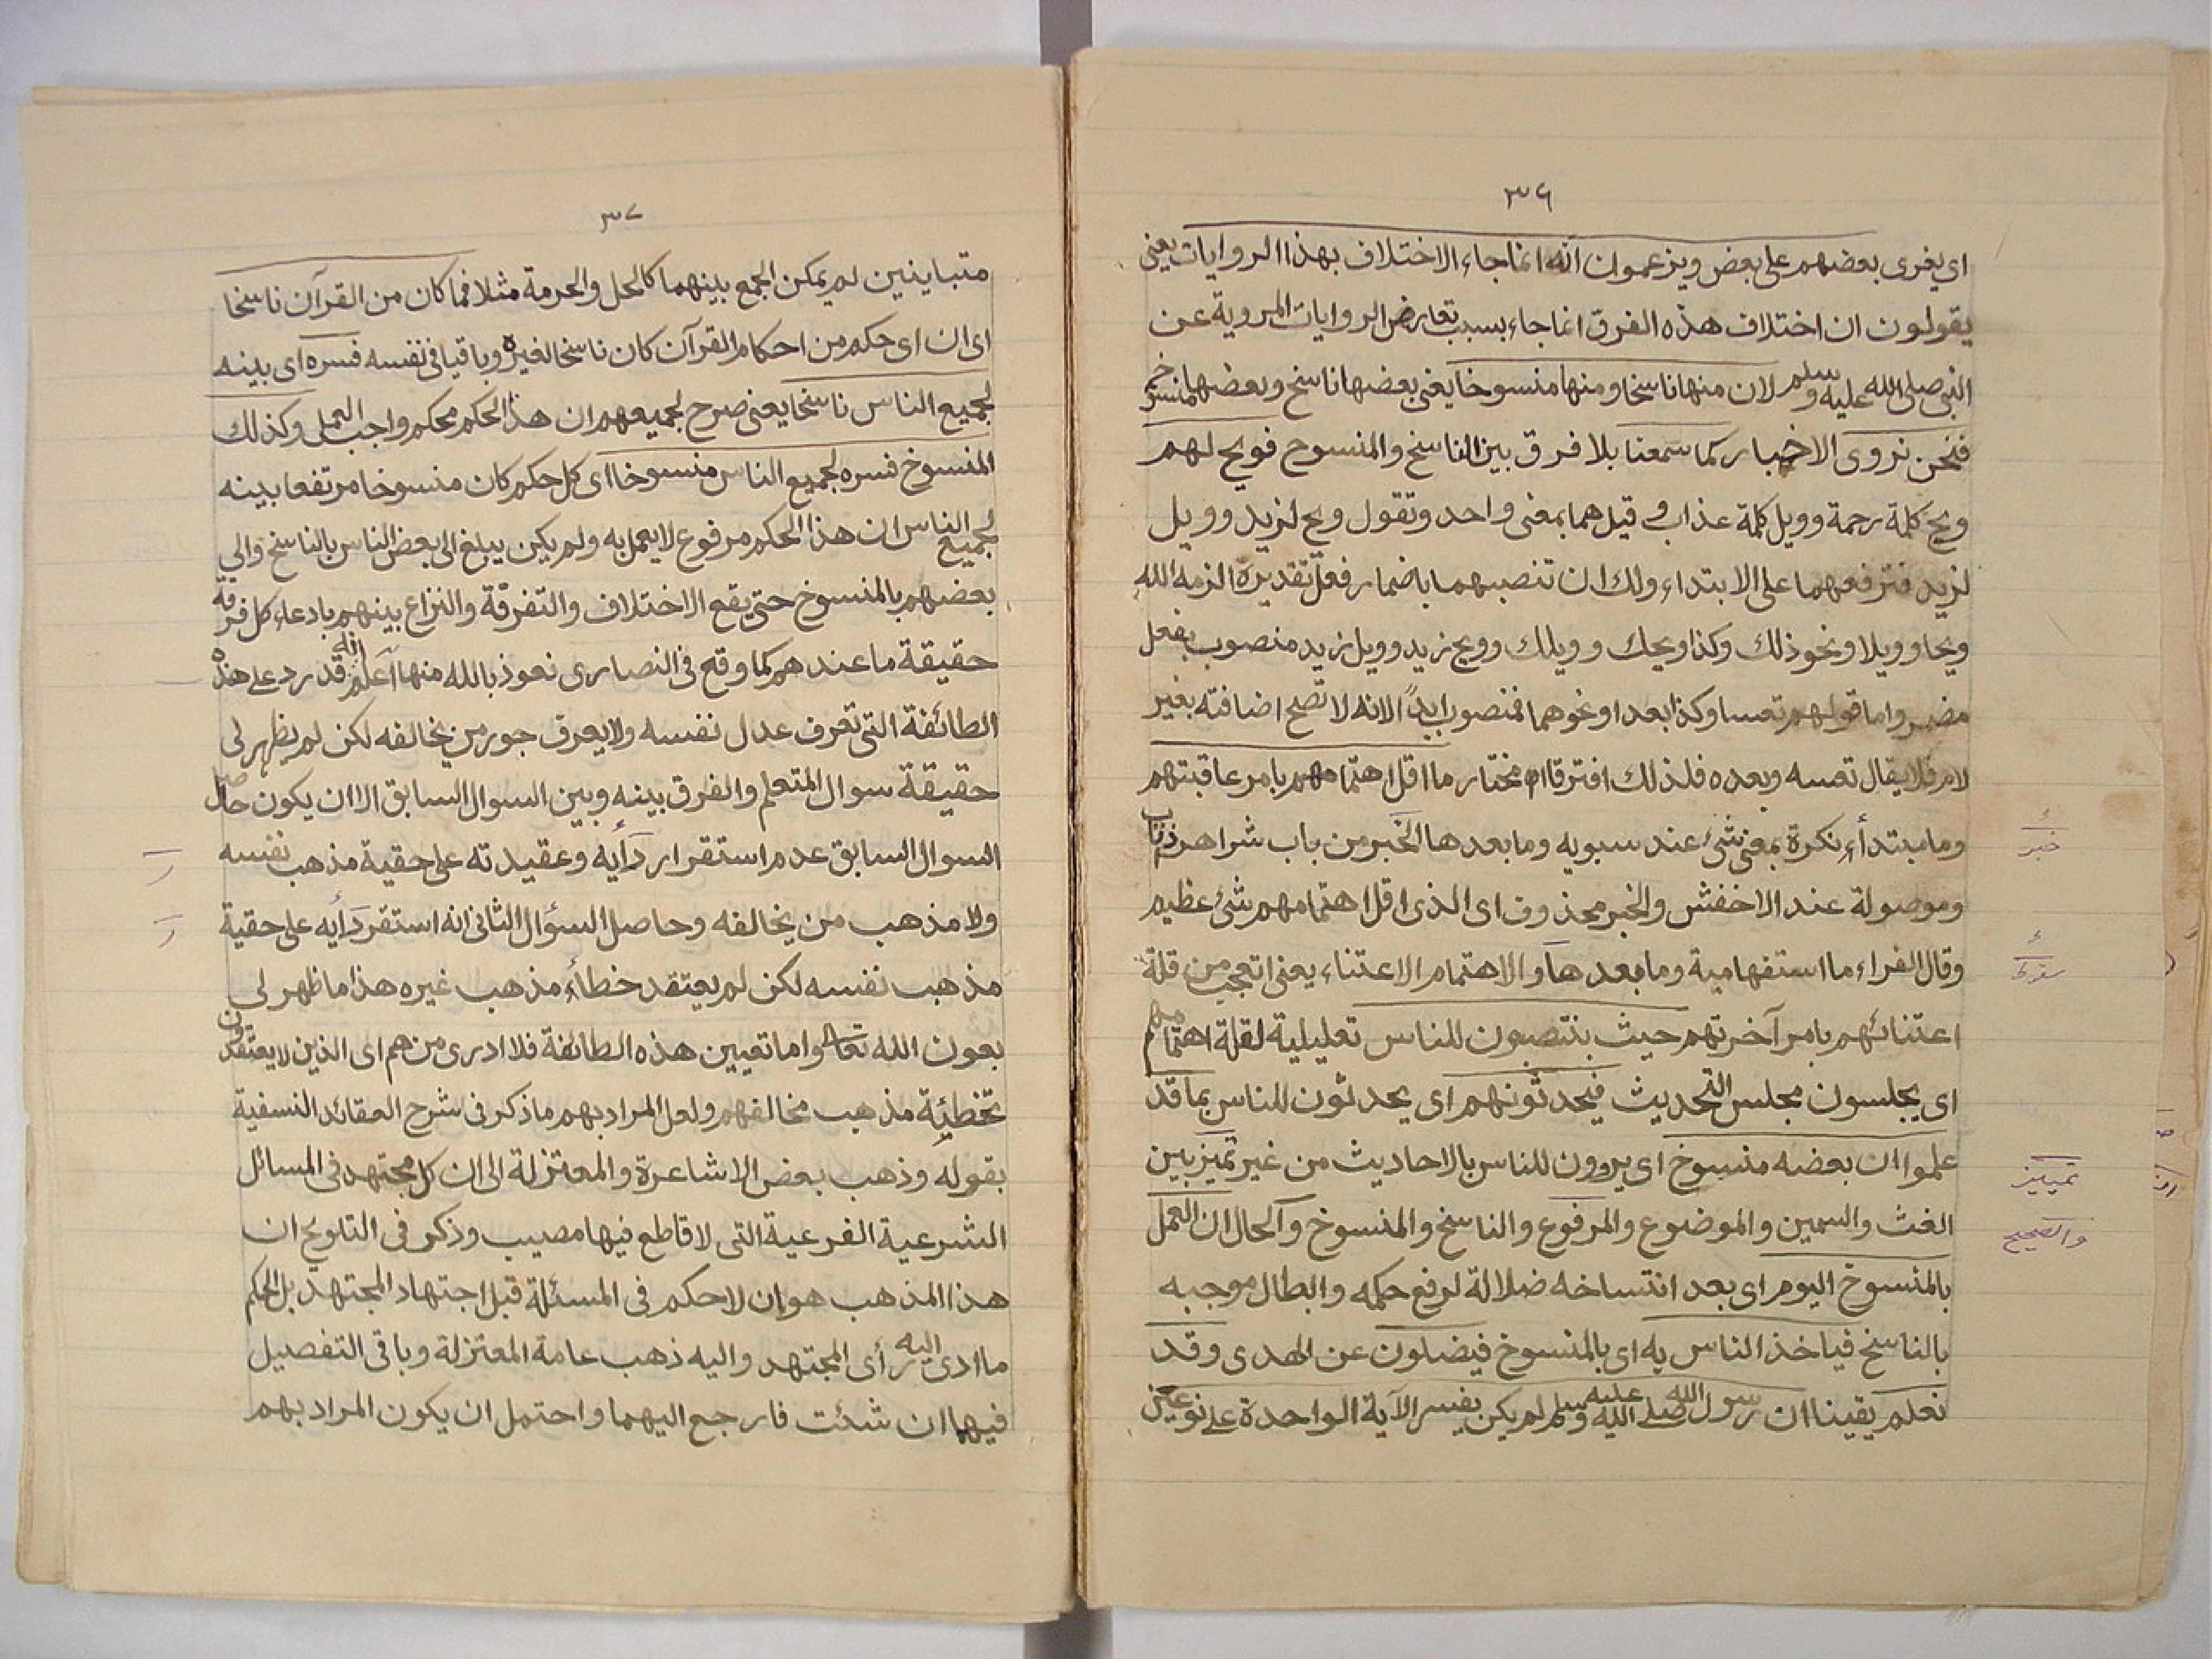 ٣٦
اى يفرى بعضهم على بعض ويزعمون انه انما جاء الاختلاف بهذا الروايات يعنى
يقولون ان اختلاف هذه الفرق انما جاء بسبب تعارض الروايات المروية عن
النبى صلى الله عليه وسلم لان منها ناسخا ومنها منسوخا يعنى بعضها ناسخ وبعضها منسوخ
فنحن نروى الاخبار كما سمعنا بلا فرق بين الناسخ والمنسوخ فويح لهم
ويح كلمة رحمة وويل كلمة عذاب وقيل هما بمعنى واحد وتقول ويح لزيد وويل
لزيد فترفعهما على الابتداء ولك ان تنصبهما باضمار فعل تقديره الزمه الله
ويحا وويلا ونحو ذلك وكذا ويحك وويلك وويح زيد وويل زيد منصوب بفعل
مضمر واما قولهم تعسا وكذا بعدا ونحوهما فمنصوب ابداً لانه لا تصح اضافته بغير
لام فلا يقال تعسه وبعده فلذلك افترقا اه مختار ما اقل اهتمامهم بامر عاقبتهم
وما مبتدأء نكرة بمعنى شئ عند سبويه وما بعدها الخبر من باب شر اهر ذا ناب
وموصولة عند الاخفش والخبر محذوف اى الذى اقل اهتمامهم شئ عظيم
وقال الفراء ما استفهامية وما بعدها والاهتمام الاعتناء يعنى اتعجب من قلة
اعتنائهم بامر آخرتهم حيث ينتصبون للناس تعليلية لقلة اهتمامهم
اى يجلسون مجلس التحديث فيحدثونهم اى يحدثون للناس بما قد
علموا ان بعضه منسوخ اى يروون للناس بالاحاديث من غير تميز بين
الغث والسمين والموضوع والمرفوع والناسخ والمنسوخ والحال ان العمل
بالمنسوخ اليوم اى بعد انتساخه ضلالة لرفع حكمه وابطال موجبه
بالناسخ فياخذ الناس به اى بالمنسوخ فيضلون عن الهدى وقد
نعلم يقينا ان رسول الله صلى الله عليه وسلم لم يكن يفسر الآية الواحدة على نوعين
خبر
تمييز
والصحيح
٣٧
متباينين لم يمكن الجمع بينهما كالحل والحرمة مثلا فما كان من القرآن ناسخا
اى ان اى حكم من احكام القرآن كان ناسخا لغيره وباقيا فى نفسه فسره اى بينه
لجميع الناس ناسخا يعنى صرح لجميعهم ان هذا الحكم محكم واجب العمل وكذلك
المنسوخ فسره لجميع الناس منسوخا اى كل حكم كان منسوخا مرتفعا بينه
لجميع الناس ان هذا الحكم مرفوع لا يعمل به ولم يكن يبلغ الى بعض الناس بالناسخ والى
بعضهم بالمنسوخ حتى يقع الاختلاف والتفرقة والنزاع بينهم بادعاء كل فرقة
حقيقة ما عندهم كما وقع فى النصارى نعوذ بالله منها اعلم انه قد رد على هذه
الطائفة التى تعرف عدل نفسه ولا يعرف جور من يخالفه لكن لم يظهر لى
حقيقة سوال المتعلم والفرق بينه وبين السوال السابق الا ان يكون حاصل
السوال السابق عدم استقرار رأيه وعقيدته على حقية مذهب نفسه
ولا مذهب من يخالفه وحاصل السؤال الثانى انه استقر رأيه على حقية
مذهب نفسه لكن لم يعتقد خطأء مذهب غيره هذا ما ظهر لى
بعون الله تعالى واما تعيين هذه الطائفة فلا ادرى من هم اى الذين لا يعتقدون
تخطيئة مذهب مخالفهم ولعل المراد بهم ما ذكر فى شرح العقائد النسفية
بقوله وذهب بعض الاشاعرة والمعتزلة الى ان كل مجتهد فى المسائل
الشرعية الفرعية التى لا قاطع فيها مصيب وذكر فى التلويح ان
هذا المذهب هو ان لا حكم فى المسئلة قبل اجتهاد المجتهد بل الحكم
ما ادى اليه رأى المجتهد واليه ذهب عامة المعتزلة وباقى التفصيل
فيهما ان شئت فارجع اليهما واحتمل ان يكون المراد بهم